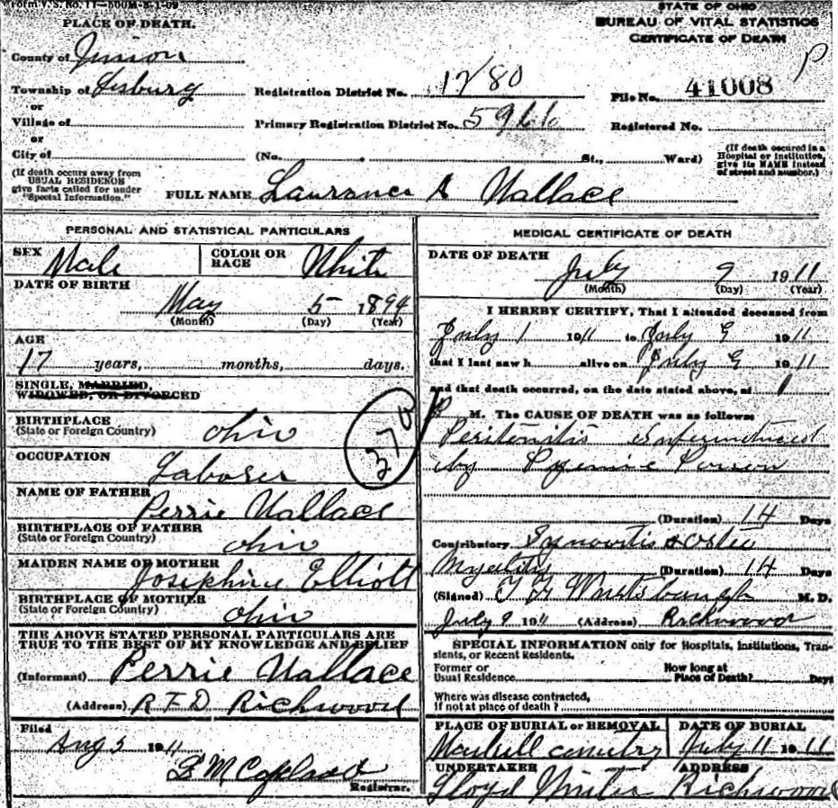 Form V. S. No. 11—500M-8-1-09
PLACE OF DEATH.
STATE OF OHIO
BUREAU OF VITAL STATISTICS
CERTIFICATE OF DEATH
County of Union
Township of Lesburg
or
Village of
or
City of
Registration District No. 1280
File No. 41008
Primary Registration District No. 5966
Registered No.
(No. , St., Ward)
(If death occured in a Hospital or Institution, give its NAME instead of street and number.)
(If death occurs away from USUAL RESIDENCE give facts called for under "Special Information.")
FULL NAME Laurance A Wallace
PERSONAL AND STATISTICAL PARTICULARS
SEX Male
COLOR OR RACE White
DATE OF BIRTH
May 5 1894
(Month) (Day) (Year)
AGE
17 years, months, days.
SINGLE, MARRIED,
WIDOWED, OR DIVORCED
BIRTHPLACE
(State or Foreign Country) Ohio
OCCUPATION
Laborer
NAME OF FATHER
Perrie Wallace
BIRTHPLACE OF FATHER
(State or Foreign Country) Ohio
MAIDEN NAME OF MOTHER
Josephine Elliott
BIRTHPLACE OF MOTHER
(State or Foreign Country) Ohio
THE ABOVE STATED PERSONAL PARTICULARS ARE
TRUE TO THE BEST OF MY KNOWLEDGE AND BELIEF
(Informant) Perrie Wallace
(Address) R F D Richwood
Filed
Aug 3 1911
Registrar.
MEDICAL CERTIFICATE OF DEATH
DATE OF DEATH
July 9 1911
(Month) (Day) (Year)
I HEREBY CERTIFY, That I attended deceased from
July 1 1911 to July 9 1911
that I last saw h alive on July 9 1911
and that death occurred, on the date stated above, at 1
P M. The CAUSE OF DEATH was as follows:
Peritonitis Superinduced
by Pyemic Poison
(Duration) 14 Days
Contributory Synovitis & Osteo
Myelitis (Duration) 14 Days
(Signed) M. D.
July 9 1911 (Address) Richwood
SPECIAL INFORMATION only for Hospitals, Institutions, Transients, or Recent Residents.
Former or Usual Residence
How long at Place of Death? Days
Where was disease contracted,
if not at place of death?
PLACE OF BURIAL or REMOVAL
DATE OF BURIAL
cemetry July 11 1911
UNDERTAKER
ADDRESS
Lloyd Winter Richwood